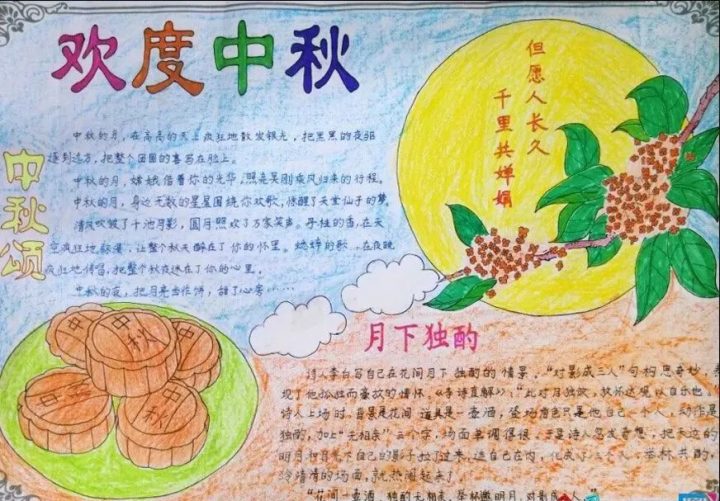 欢度中秋
但愿人长久
千里共婵娟
中秋颂
中秋的月,在高高的天上疯狂地散发银光,把黑黑的夜驱
逐到远方,把整个团圆的喜写在脸上。
中秋的月,嫦娥借着你的光华,照亮吴刚疾风归来的行程。
中秋的月,身边无数的星星围绕你欢歌,惊醒了天堂仙子的梦,
清风吹皱了千池月影,圆月照欢了万家笑声。丹桂的香,在天
空疯狂地弥漫,让整个秋天醉在了你的怀里。蟋蟀的歌,在夜晚
疯狂地传唱,把整个秋夜迷在了你的心里。
中秋的夜,把月亮当作饼,甜了心房……
月下独酌
诗人李白写自己在花间月下独酌的情景。"对影成三人"句构思奇妙,表
现了他孤独而豪放的情怀。《李诗直解》:"此对月独饮,放怀达观以自乐也。
诗人上场时,背景是花间,道具是一壶酒,登场角色只是他自己一个人,动作是
独酌,加上"无相亲"三个字,场面单调得很。于是诗人忽发奇想,把天边的
明月和月光下自己的影子拉了过来,连自己在内,化成了三个人,举杯共酌,
冷清清的场面,就热闹起来了
"花间一壶酒,独酌无相亲。举杯邀明月,对影成三人。"
中秋
中秋
中秋
中秋
中秋